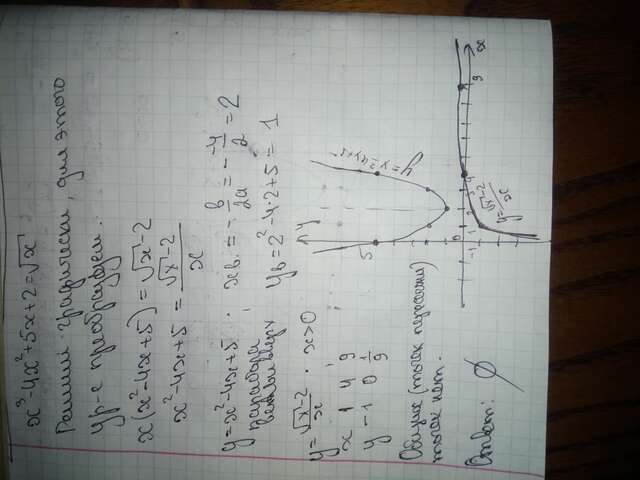 x³-4x²+5x+2=√x
Решим графически, для этого
ур-е преобразуем.
x(x²-4x+5)=√x-2
x²-4x+5=(√x-2)/x
y=x²-4x+5. xв.=-b/2a=-(-4)/2=2
парабола
ветви вверх yв=2²-4·2+5=1
y=(√x-2)/x. x>0
x 1 4 9
y -1 0 1/9
Общих (точек пересечен)
точек нет.
Ответ: ∅
y
y=x²-4x+5
5
0
-1
1
4
9
x
y=(√x-2)/x